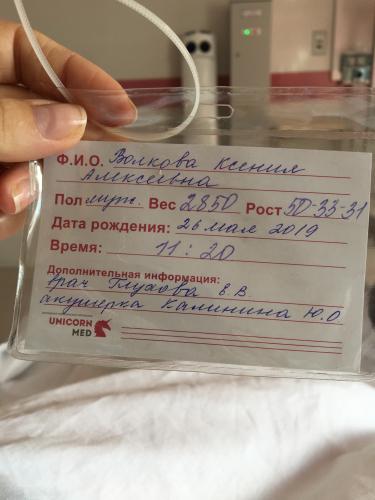 Ф.И.О. Волкова Ксения
Алексевна
Пол муж. Вес 2850 Рост 50-33-31
Дата рождения: 26 мая 2019
Время: 11:20
Дополнительная информация:
врач Глухова Е.В
акушерка Калинина Ю.О
UNICORN
MED